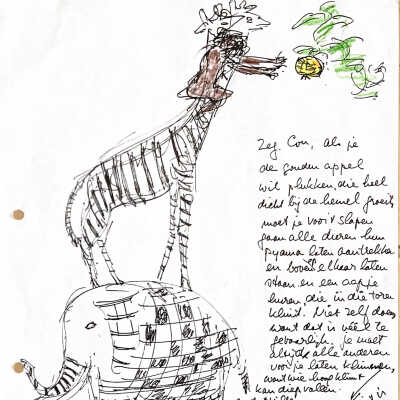 Zeg. Con, als je
de gouden appel
wil plukken, die heel
dicht bij de hemel groeit,
moet je voor 't slapen
gaan alle dieren hun
pyama laten aantrekken
en boven elkaar laten
staan en een aapje
huren, die in die toren
klimt. Niet zelf doen,
want dat is véél te
gevaarlijk. Je moet
altijd alle anderen
voor je laten klimmen,
want wie hoog klimt
kan diep vallen.